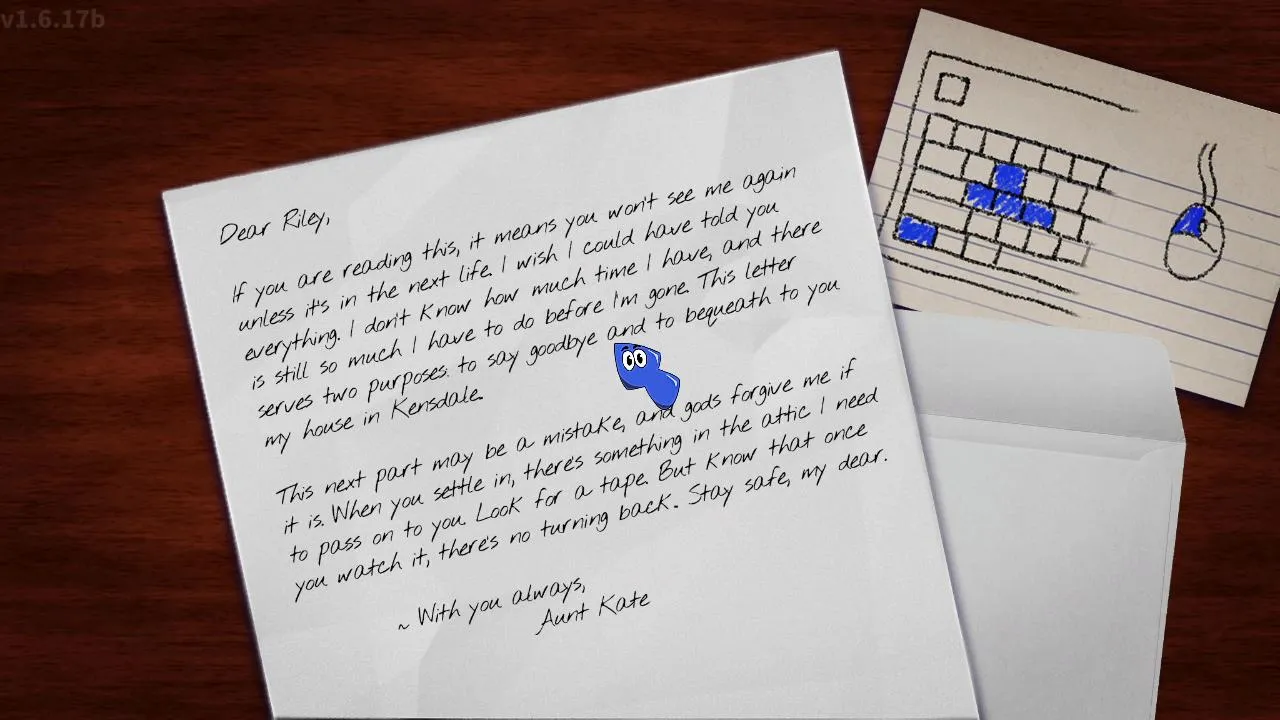 v1.6.17b
Dear Riley,
If you are reading this, it means you won't see me again
unless it's in the next life. I wish I could have told you
everything. I don't know how much time I have, and there
is still so much I have to do before I'm gone. This letter
serves two purposes: to say goodbye and to bequeath to you
my house in Kensdale.
This next part may be a mistake, and gods forgive me if
it is. When you settle in, there's something in the attic I need
to pass on to you. Look for a tape. But know that once
you watch it, there's no turning back. Stay safe, my dear.
~ With you always,
Aunt Kate